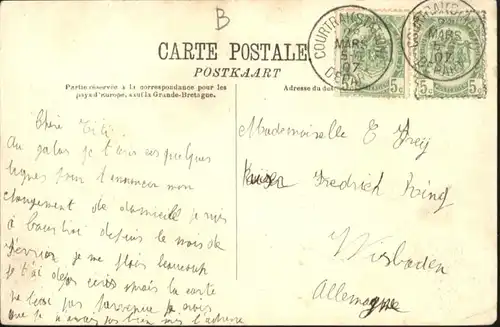 B
CARTE POSTALE
POSTKAART
Partie réservée à la correspondance pour les
pays d'Europe, sauf la Grande-Bretagne.
Adresse du des
COURTRAI
MARS
5
07
DEPART
5c
COURTRAI
MARS
5
07
DEPART
5c
Chère Titi.
Au galop je t'envoie quelques
lignes pour t'annoncer mon
changement de domicile je suis
à Courtrai depuis le mois de
Février je me plais beaucoup
je t'ai déjà mais la carte
ne t'est pas parvenue je crois
que je n'avais pas bien mis l'adresse
Mademoiselle E
Kaiser Fredrich Ring
Wisbaden
Allemagne